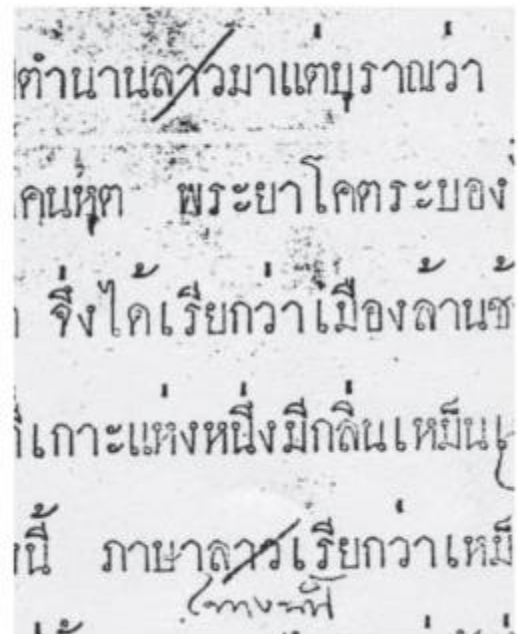 ตำนานลาวมาแต่บุราณว่า
คนหุต พระยาโคตระบอง
จึ่งได้เรียกว่าเมืองล้านช้
เกาะแห่งหนึ่งมีกลิ่นเหม็น
นี้ ภาษาลาวเรียกว่าเหม็